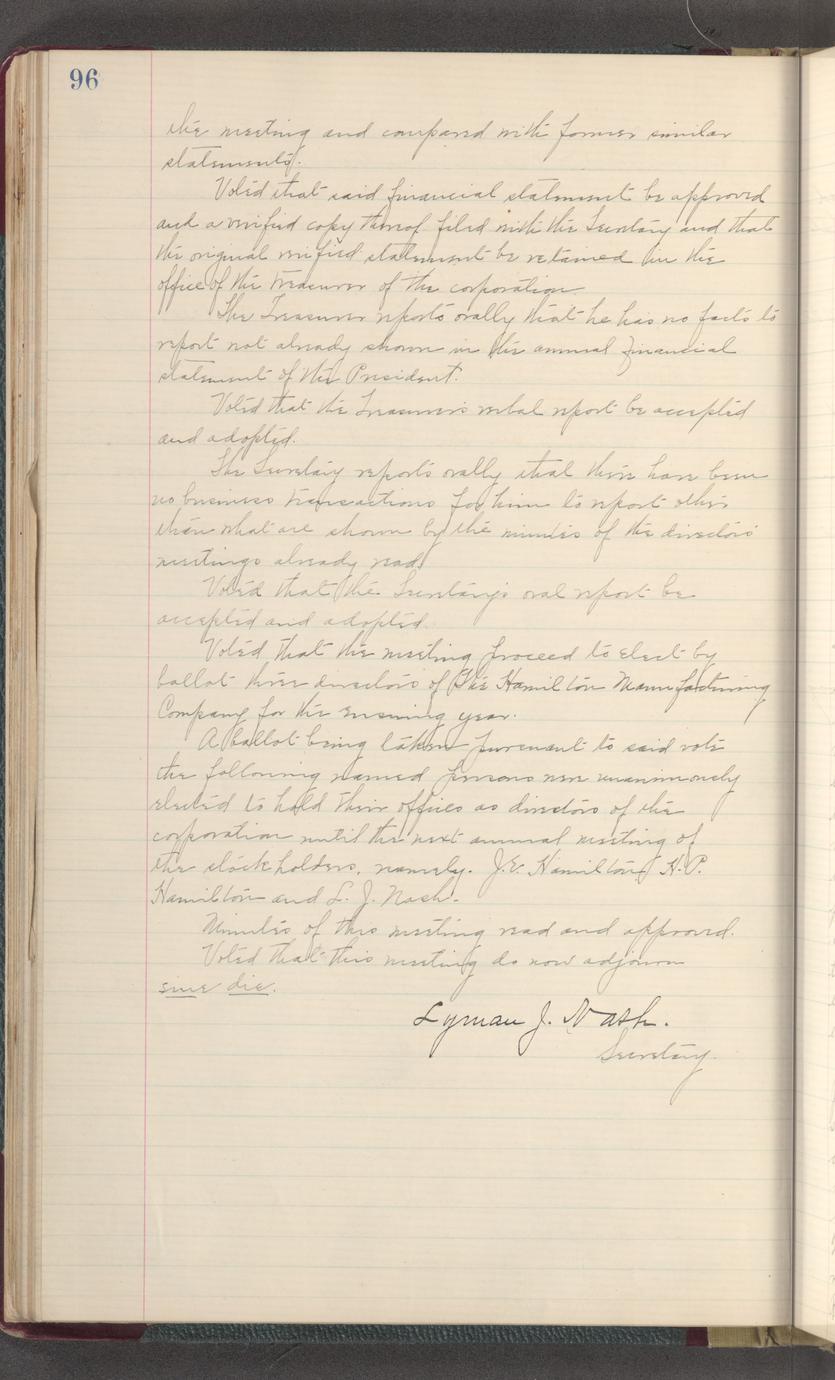 96
the meeting and compared with former similar
statements.
Voted that said financial statement be approved
and a verified copy thereof filed with the Secretary and that
the original verified statement be retained in the
office of the treasurer of the corporation
The Treasurer reports orally that he has no facts to
report not already shown in the annual financial
statement of the President.
Voted that the Treasurer's verbal report be accepted
and adopted.
The Secretary reports orally that there have been
no business transactions for him to report other
than what are shown by the minutes of the directors'
meetings already read.
Voted that the Secretary's oral report be
accepted and adopted.
Voted that the meeting proceed to elect by
ballot three directors of The Hamilton Manufacturing
Company for the ensuing year.
A ballot being taken pursuant to said vote
the following named persons were unanimously
elected to hold their offices as directors of the
corporation until the next annual meeting of
the stockholders, namely. J.E. Hamilton, H.P.
Hamilton and L. J. Nash.
Minutes of this meeting read and approved.
Voted that this meeting do now adjourn
sine die.
Lyman J. Nash.
Secretary.